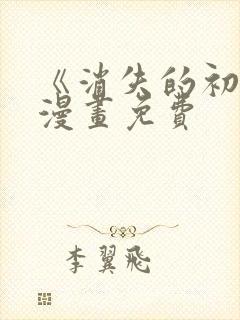 《消失的初
漫畫免費
李翼飛